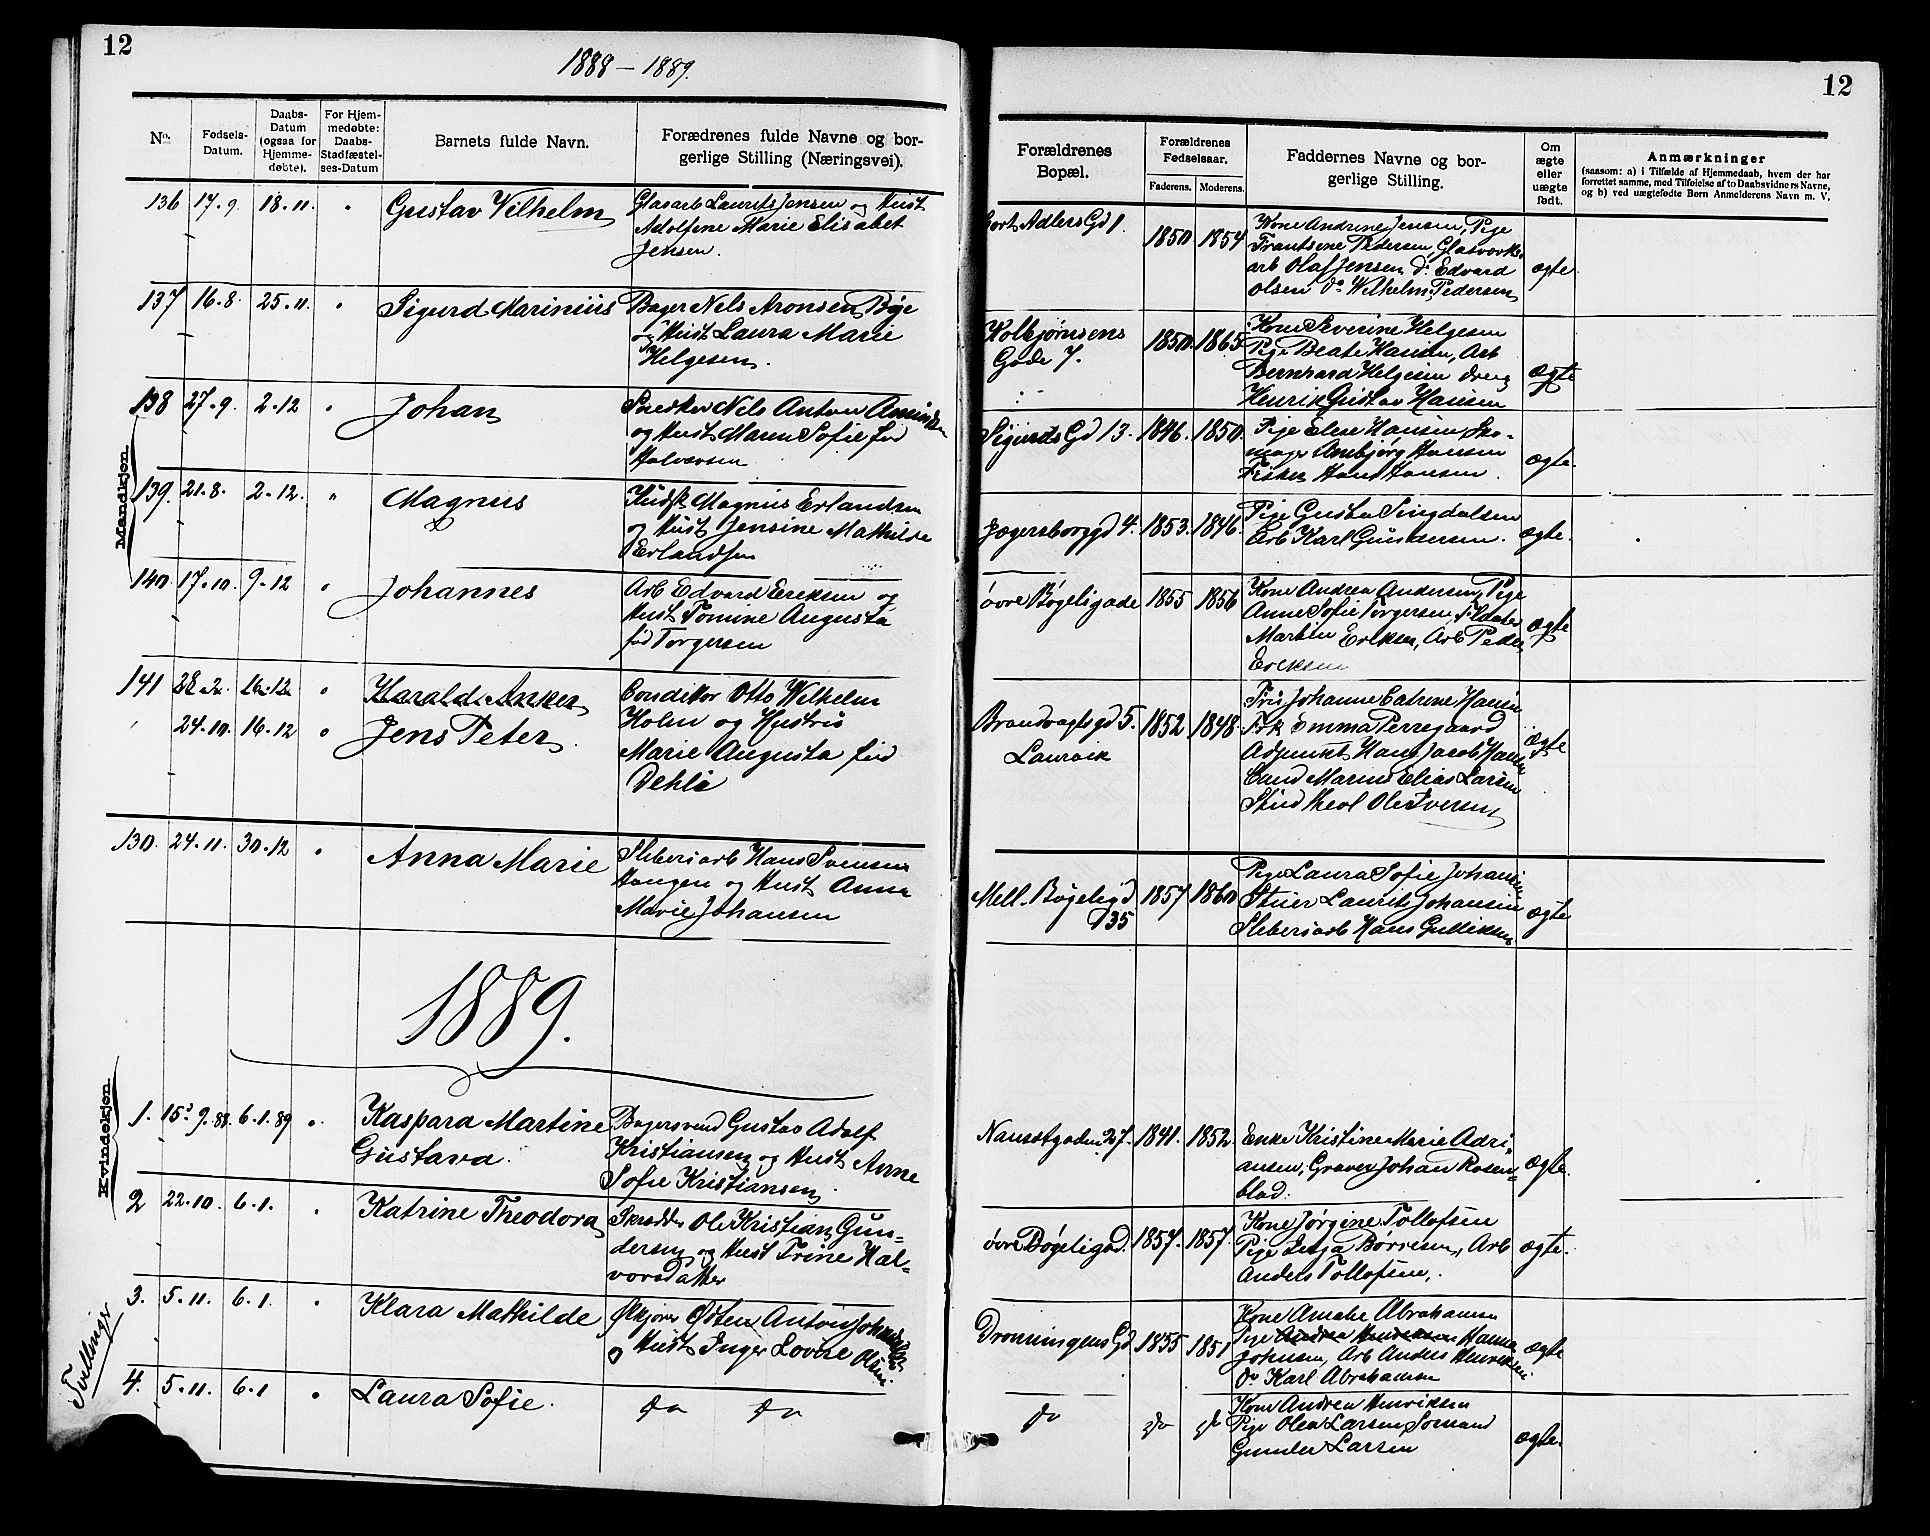 12
1888 - 1889.
No.
Fødsels-
Datum.
Daabs-
Datum
(ogsaa for
Hjemme-
døbte).
For Hjem-
medøbte:
Daabs-
Stadfæstel-
ses-Datum
Barnets fulde Navn.
Forældrenes fulde Navne og bor-
gerlige Stilling (Næringsvei).
136 17.9. 18.11. " Gustav Vilhelm
Glasarb Laurits Jensen og Hust
Adolfine Marie Elisabet
Jensen.
137 16.8 25.11. " Sigurd Marinius
Bager Nels Aronsen Bøje
og Hust Laura Marie
Helgesen.
Mandkjøn
138 27.9. 2.12 " Johan
Snedker Nels Anton
og Hust Maren Sofie fød
Halvorsen
139. 21.8. 2.12. " Magnus
Magnus Erlandsen
og Hust Jensine Mathilde
Erlandsen
140. 17.10. 9.12 " Johannes
Arb Edvard Eriksen og
Hust Tomine Augusta
fød Torgersen
141 16.12 " Harald Anker
24.10. 16.12 " Jens Peter
Conditor Otto Wilhelm
Holm og Hustru
Marie Augusta fød
Dehli
130. 24.11. 30.12 " Anna Marie
Sliberiarb Hans Svensen
Haugen og Hust Anna
Marie Johansen
1889.
Kvindekjøn
1. 15.9.88. 6.1.89 " Kaspara Martine
Gustava.
Bagersvend Gustav Adolf
Kristiansen og Hust Anne
Sofie Kristiansen.
2 22.10. 6.1. " Katrine Theodora
Skrædder Ole Kristian Gun-
dersen og Hust Trine Hal-
vorsdatter
Tvillinger
3. 5.11. 6.1. " Klara Mathilde
Østen Anton
Hust Inger Lovise Olsen
4. 5.11. 6.1 " Laura Sofie.
do do
12
Forældrenes
Bopæl.
Forældrenes
Fødselsaar.
Faderens. Moderens.
Faddernes Navne og bor-
gerlige Stilling.
Om
ægte
eller
uægte
født.
Anmærkninger
(saasom: a) i Tilfælde af Hjemmedaab, hvem der har
forrettet samme, med Tilføielse af to Daabsvidners Navne,
og b) ved uægtefødte Børn Anmelderens Navn m. V.
Cort Adlers Gd 1. 1850 1854
Kone Andrine Jensen, Pige
Frantsine Pedersen, Glasværks
arb Olaf Jensen do Edvard
Olsen do Wilhelm Pedersen
ægte
Kolbjørnsens
Gade 7.
1850. 1865
Kone Severine Helgesen
Pige Beate Hansen, Arb
Bernhard Helgesen dreng
Henrik Gustav Hansen
ægte
Sigurds Gd 13. 1846. 1850.
Pige Elise Hansen, Sko-
mager Ansbjørg Hansen
Fisker Hans Hansen.
ægte.
Jægersborggd 4. 1853. 1846.
Pige Gusta Singdalsen
Arb Karl Gundersen.
ægte.
øvre Bøgeligade 1855 1856
Kone Andrea Andersen, Pige
Anne Sofie Torgersen,
Martin Eriksen, Arb Peder
Eriksen
ægte
Brandvagtsgd 5.
Laurvik
1852 1848
Fru Johanne Catrine Hansen
Frk Emma Perregaard
Adjunkt Hans Jacob Hansen
Cand Marius Elias Larsen
Stud theol Ole Iversen
ægte
Mell. Bøgeligd
35
1857 1860
Pige Laura Sofie Johansen
Stuer Laurits Johansen
Sliberiarb Hans Gulliksen
ægte
Nansetgaden 27. 1841. 1852.
Enke Kristine Marie Adri-
ansen, Graver Johan Rosen-
blad.
ægte.
øvre Bøgeligd. 1857. 1857.
Kone Jørgine Tollofsen
Pige Børresen, Arb
Anders Tollofsen.
ægte.
Dronningens Gd 1855 1851
Kone Amalie Abrahamsen
Pige Andrea Henriksen Hanna
Johnsen, Arb Anders Henriksen
do Karl Abrahamsen
ægte
do do do
Kone Andrea Henriksen
Pige Olea Larsen, Sømand
Gunder Larsen
ægte.